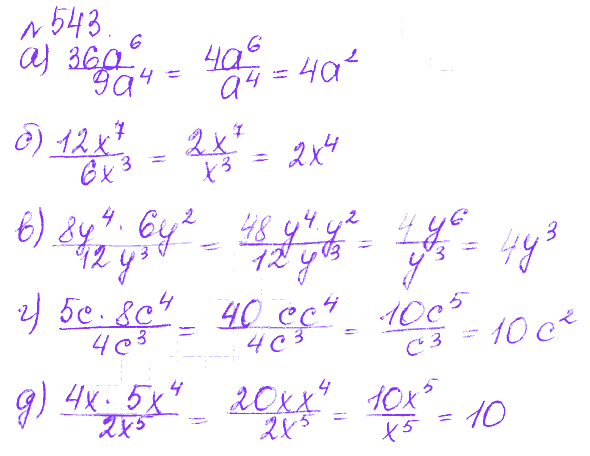 № 543.
а) 36a⁶/9a⁴ = 4a⁶/a⁴ = 4a²
б) 12x⁷/6x³ = 2x⁷/x³ = 2x⁴
в) 8y⁴ · 6y²/12y³ = 48y⁴·y²/12y³ = 4y⁶/y³ = 4y³
г) 5c · 8c⁴/4c³ = 40cc⁴/4c³ = 10c⁵/c³ = 10c²
д) 4x · 5x⁴/2x⁵ = 20xx⁴/2x⁵ = 10x⁵/x⁵ = 10